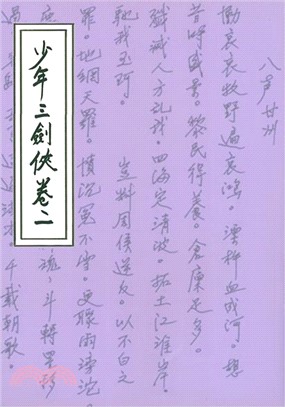 八声甘州
慟哀哀牧野遍哀鴻。漂杵血成河。想
昔時盛景。黎民得養。倉廩足多。
殲滅人方乱我。四海定清波。拓土江淮岸。
馳我玉珂。 豈料周侯逆反。以不白之
罪。地網天羅。憤沉冤不雪。更驟雨滂沱。
魂,斗轉星移
千載朝歌。
少年三劍俠卷二